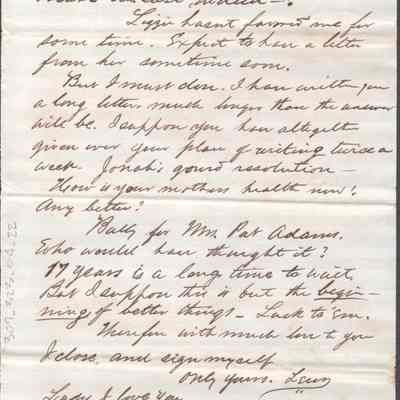 Lizzie hasnt favored me for
some time. Expect to have a letter
from her sometime soon.
But I must close. I have written you
a long letter, much longer than the answer
will be. I suppose you have altogether
given over your plan of writing twice a
week. Jonah's gourd resolution –
How is your mothers health now?
Any better?
Bully for Mrs. Pat Adams.
Who would have thought it?
17 years is a long time to wait.
But I suppose this is but the begin-
ning of better things – Luck to 'em.
Therefore with much love to you
I close and sign myself
Only yours.
Lady I love you